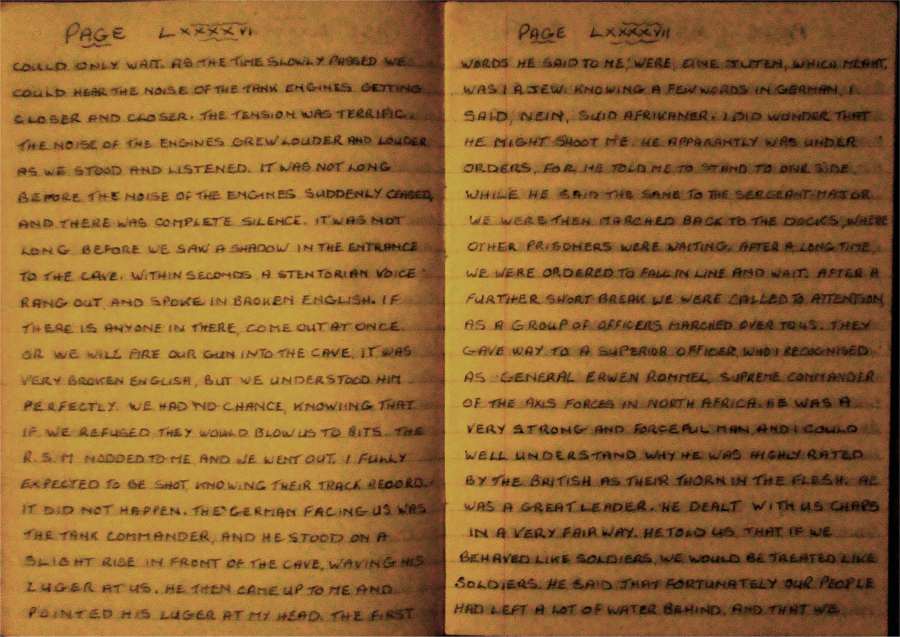 PAGE LXXXXVI
COULD ONLY WAIT. AS THE TIME SLOWLY PASSED WE
COULD HEAR THE NOISE OF THE TANK ENGINES GETTING
CLOSER AND CLOSER. THE TENSION WAS TERRIFIC.
THE NOISE OF THE ENGINES GREW LOUDER AND LOUDER
AS WE STOOD AND LISTENED. IT WAS NOT LONG
BEFORE THE NOISE OF THE ENGINES SUDDENLY CEASED,
AND THERE WAS COMPLETE SILENCE. IT WAS NOT
LONG BEFORE WE SAW A SHADOW IN THE ENTRANCE
TO THE CAVE. WITHIN SECONDS A STENTORIAN VOICE
RANG OUT AND SPOKE IN BROKEN ENGLISH. IF
THERE IS ANYONE IN THERE, COME OUT AT ONCE.
OR WE WILL FIRE OUR GUN INTO THE CAVE. IT WAS
VERY BROKEN ENGLISH, BUT WE UNDERSTOOD HIM
PERFECTLY. WE HAD NO CHANCE, KNOWIING THAT
IF WE REFUSED THEY WOULD BLOW US TO BITS. THE
R.S.M NODDED TO ME AND WE WENT OUT. I FULLY
EXPECTED TO BE SHOT, KNOWING THEIR TRACK RECORD.
IT DID NOT HAPPEN. THE GERMAN FACING US WAS
THE TANK COMMANDER, AND HE STOOD ON A
SLIGHT RISE IN FRONT OF THE CAVE, WAVING HIS
LUGER AT US. HE THEN CAME UP TO ME AND
POINTED HIS LUGER AT MY HEAD. THE FIRST
PAGE LXXXXVII
WORDS HE SAID TO ME, WERE, EINE JUTEN, WHICH MEANT,
WAS I A JEW. KNOWING A FEW WORDS IN GERMAN, I
SAID, NEIN, SUID AFRIKANER. I DID WONDER THAT
HE MIGHT SHOOT ME. HE APPARANTLY WAS UNDER
ORDERS, FOR HE TOLD ME TO STAND TO ONE SIDE
WHILE HE SAID THE SAME TO THE SERGEANT-MAJOR.
WE WERE THEN MARCHED BACK TO THE DOCKS, WHERE
OTHER PRISONERS WERE WAITING. AFTER A LONG TIME,
WE WERE ORDERED TO FALL IN LINE AND WAIT. AFTER A
FURTHER SHORT BREAK WE WERE CALLED TO ATTENTION,
AS A GROUP OF OFFICERS MARCHED OVER TO US. THEY
GAVE WAY TO A SUPERIOR OFFICER, WHO I RECOGNISED
AS GENERAL ERWEN ROMMEL, SUPREME COMMANDER
OF THE AXIS FORCES IN NORTH AFRICA. HE WAS A
VERY STRONG AND FORCEFUL MAN, AND I COULD
WELL UNDERSTAND WHY HE WAS HIGHLY RATED
BY THE BRITISH AS THEIR THORN IN THE FLESH. HE
WAS A GREAT LEADER. HE DEALT WITH US CHAPS
IN A VERY FAIR WAY. HE TOLD US, THAT IF WE
BEHAVED LIKE SOLDIERS, WE WOULD BE TREATED LIKE
SOLDIERS. HE SAID THAT FORTUNATELY OUR PEOPLE
HAD LEFT A LOT OF WATER BEHIND, AND THAT WE